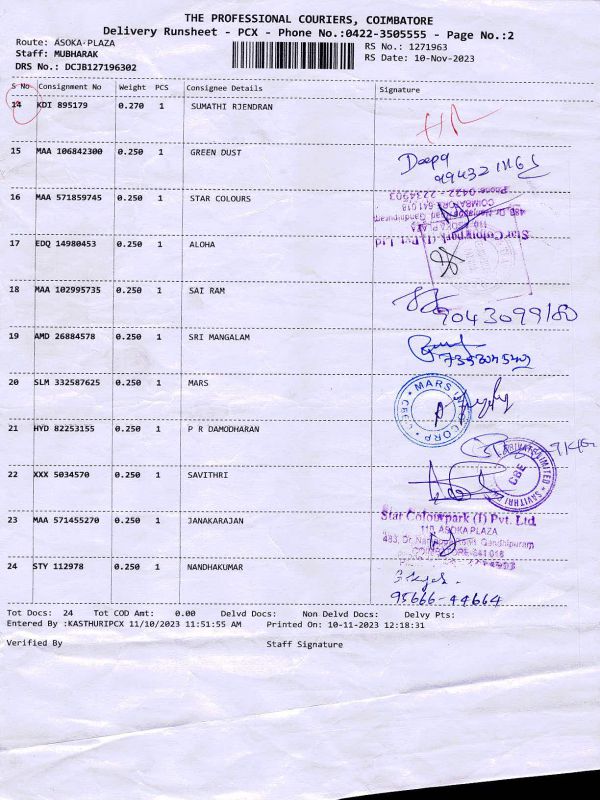 THE PROFESSIONAL COURIERS, COIMBATORE
Delivery Runsheet - PCX - Phone No.:0422-3505555 - Page No.:2
Route: ASOKA-PLAZA
Staff: MUBHARAK
DRS No.: DCJB127196302
RS No.: 1271963
RS Date: 10-Nov-2023
S No Consignment No Weight PCS Consignee Details Signature
14 KDI 895179 0.270 1 SUMATHI RJENDRAN
15 MAA 106842300 0.250 1 GREEN DUST
Deepa
16 MAA 571859745 0.250 1 STAR COLOURS
Star Colourpark (I) Pvt. Ltd
110, ASOKA PLAZA
COIMBATORE-641 018
Phone: 0422 - 2234903
17 EDQ 14980453 0.250 1 ALOHA
18 MAA 102995735 0.250 1 SAI RAM
9043099180
19 AMD 26884578 0.250 1 SRI MANGALAM
20 SLM 332587625 0.250 1 MARS
MARS CORP CBE
21 HYD 82253155 0.250 1 P R DAMODHARAN
22 XXX 5034570 0.250 1 SAVITHRI
SAVITHRI PRIVATE LIMITED CBE
23 MAA 571455270 0.250 1 JANAKARAJAN
Star Colourpark (I) Pvt. Ltd
110, ASOKA PLAZA
483, Dr. Gandhipuram
COIMBATORE-641 018
24 STY 112978 0.250 1 NANDHAKUMAR
95666-44664
Tot Docs: 24 Tot COD Amt: 0.00 Delvd Docs: Non Delvd Docs: Delvy Pts:
Entered By :KASTHURIPCX 11/10/2023 11:51:55 AM Printed On: 10-11-2023 12:18:31
Verified By Staff Signature